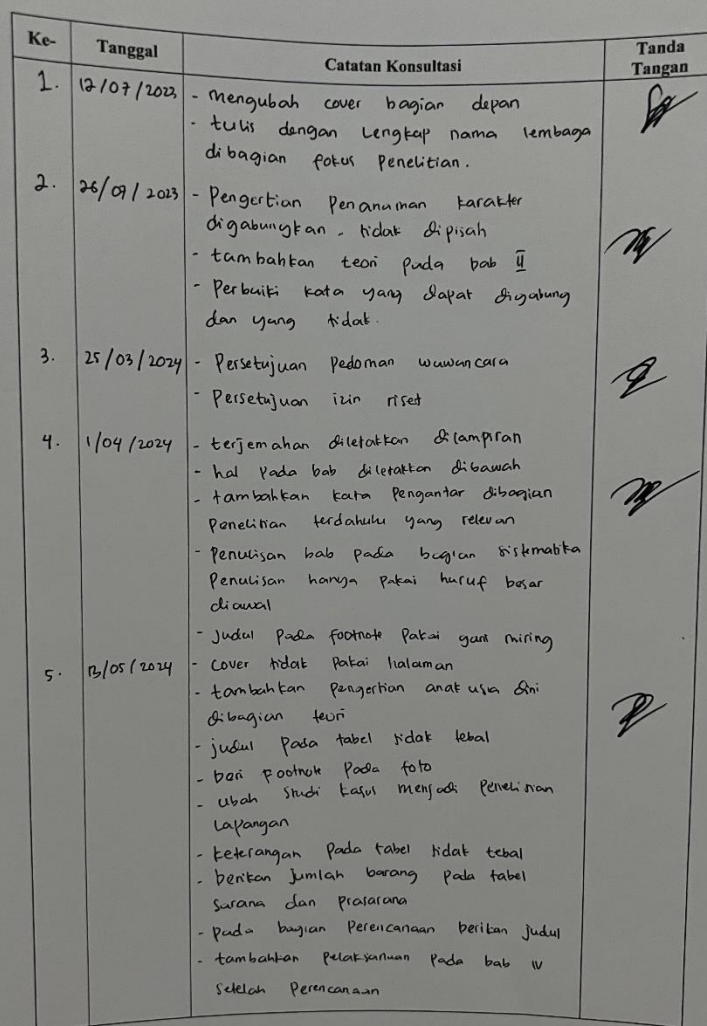 Ke- Tanggal Catatan Konsultasi Tanda Tangan
1. 12/07/2023 - mengubah cover bagian depan
- tulis dengan lengkap nama lembaga
dibagian fokus Penelitian.
2. 26/09/2023 - Pengertian Penanaman karakter
digabungkan - tidak dipisah
- tambahkan teori pada bab II
- Perbaiki kata yang dapat digabung
dan yang tidak.
3. 25/03/2024 - Persetujuan Pedoman wawancara
- Persetujuan izin riset
4. 1/04/2024 - terjemahan diletakkan dilampiran
- hal Pada bab diletakkan dibawah
- tambahkan kata Pengantar dibagian
Penelitian terdahulu yang relevan
- Penulisan bab pada bagian sistematika
Penulisan hanya Pakai huruf besar
diawal
- Judul Pada footnote Pakai garis miring
5. 13/05/2024 - Cover tidak Pakai halaman
- tambahkan Pengertian anak usia dini
dibagian teori
- judul Pada tabel tidak tebal
- beri Footnote Pada foto
- ubah Studi kasus menjadi Penelitian
Lapangan
- keterangan Pada tabel tidak tebal
- berikan jumlah barang pada tabel
Sarana dan Prasarana
- pada bagian Perencanaan berikan judul
- tambahkan Pelaksanaan Pada bab IV
Setelah Perencanaan